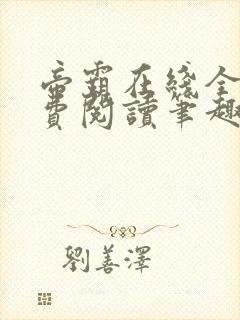 帝霸在綫全
費閱讀筆趣
劉善澤